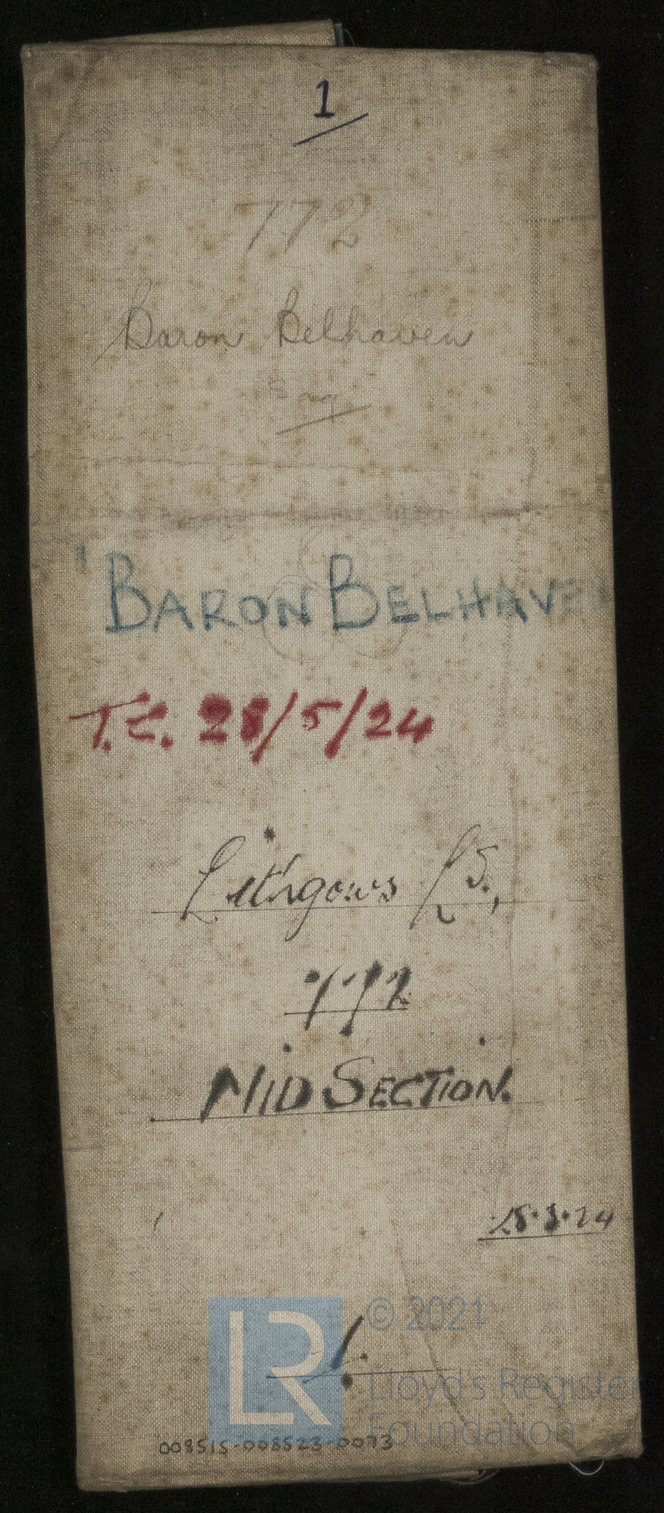 1
772
Baron Belhaven
"BARON BELHAVEN
T.C. 28/5/24
Lithgows Ld.,
772
MIDSECTION.
28.3.24
1.
LR
© 2021
Lloyd's Register
Foundation
008515-008523-0073